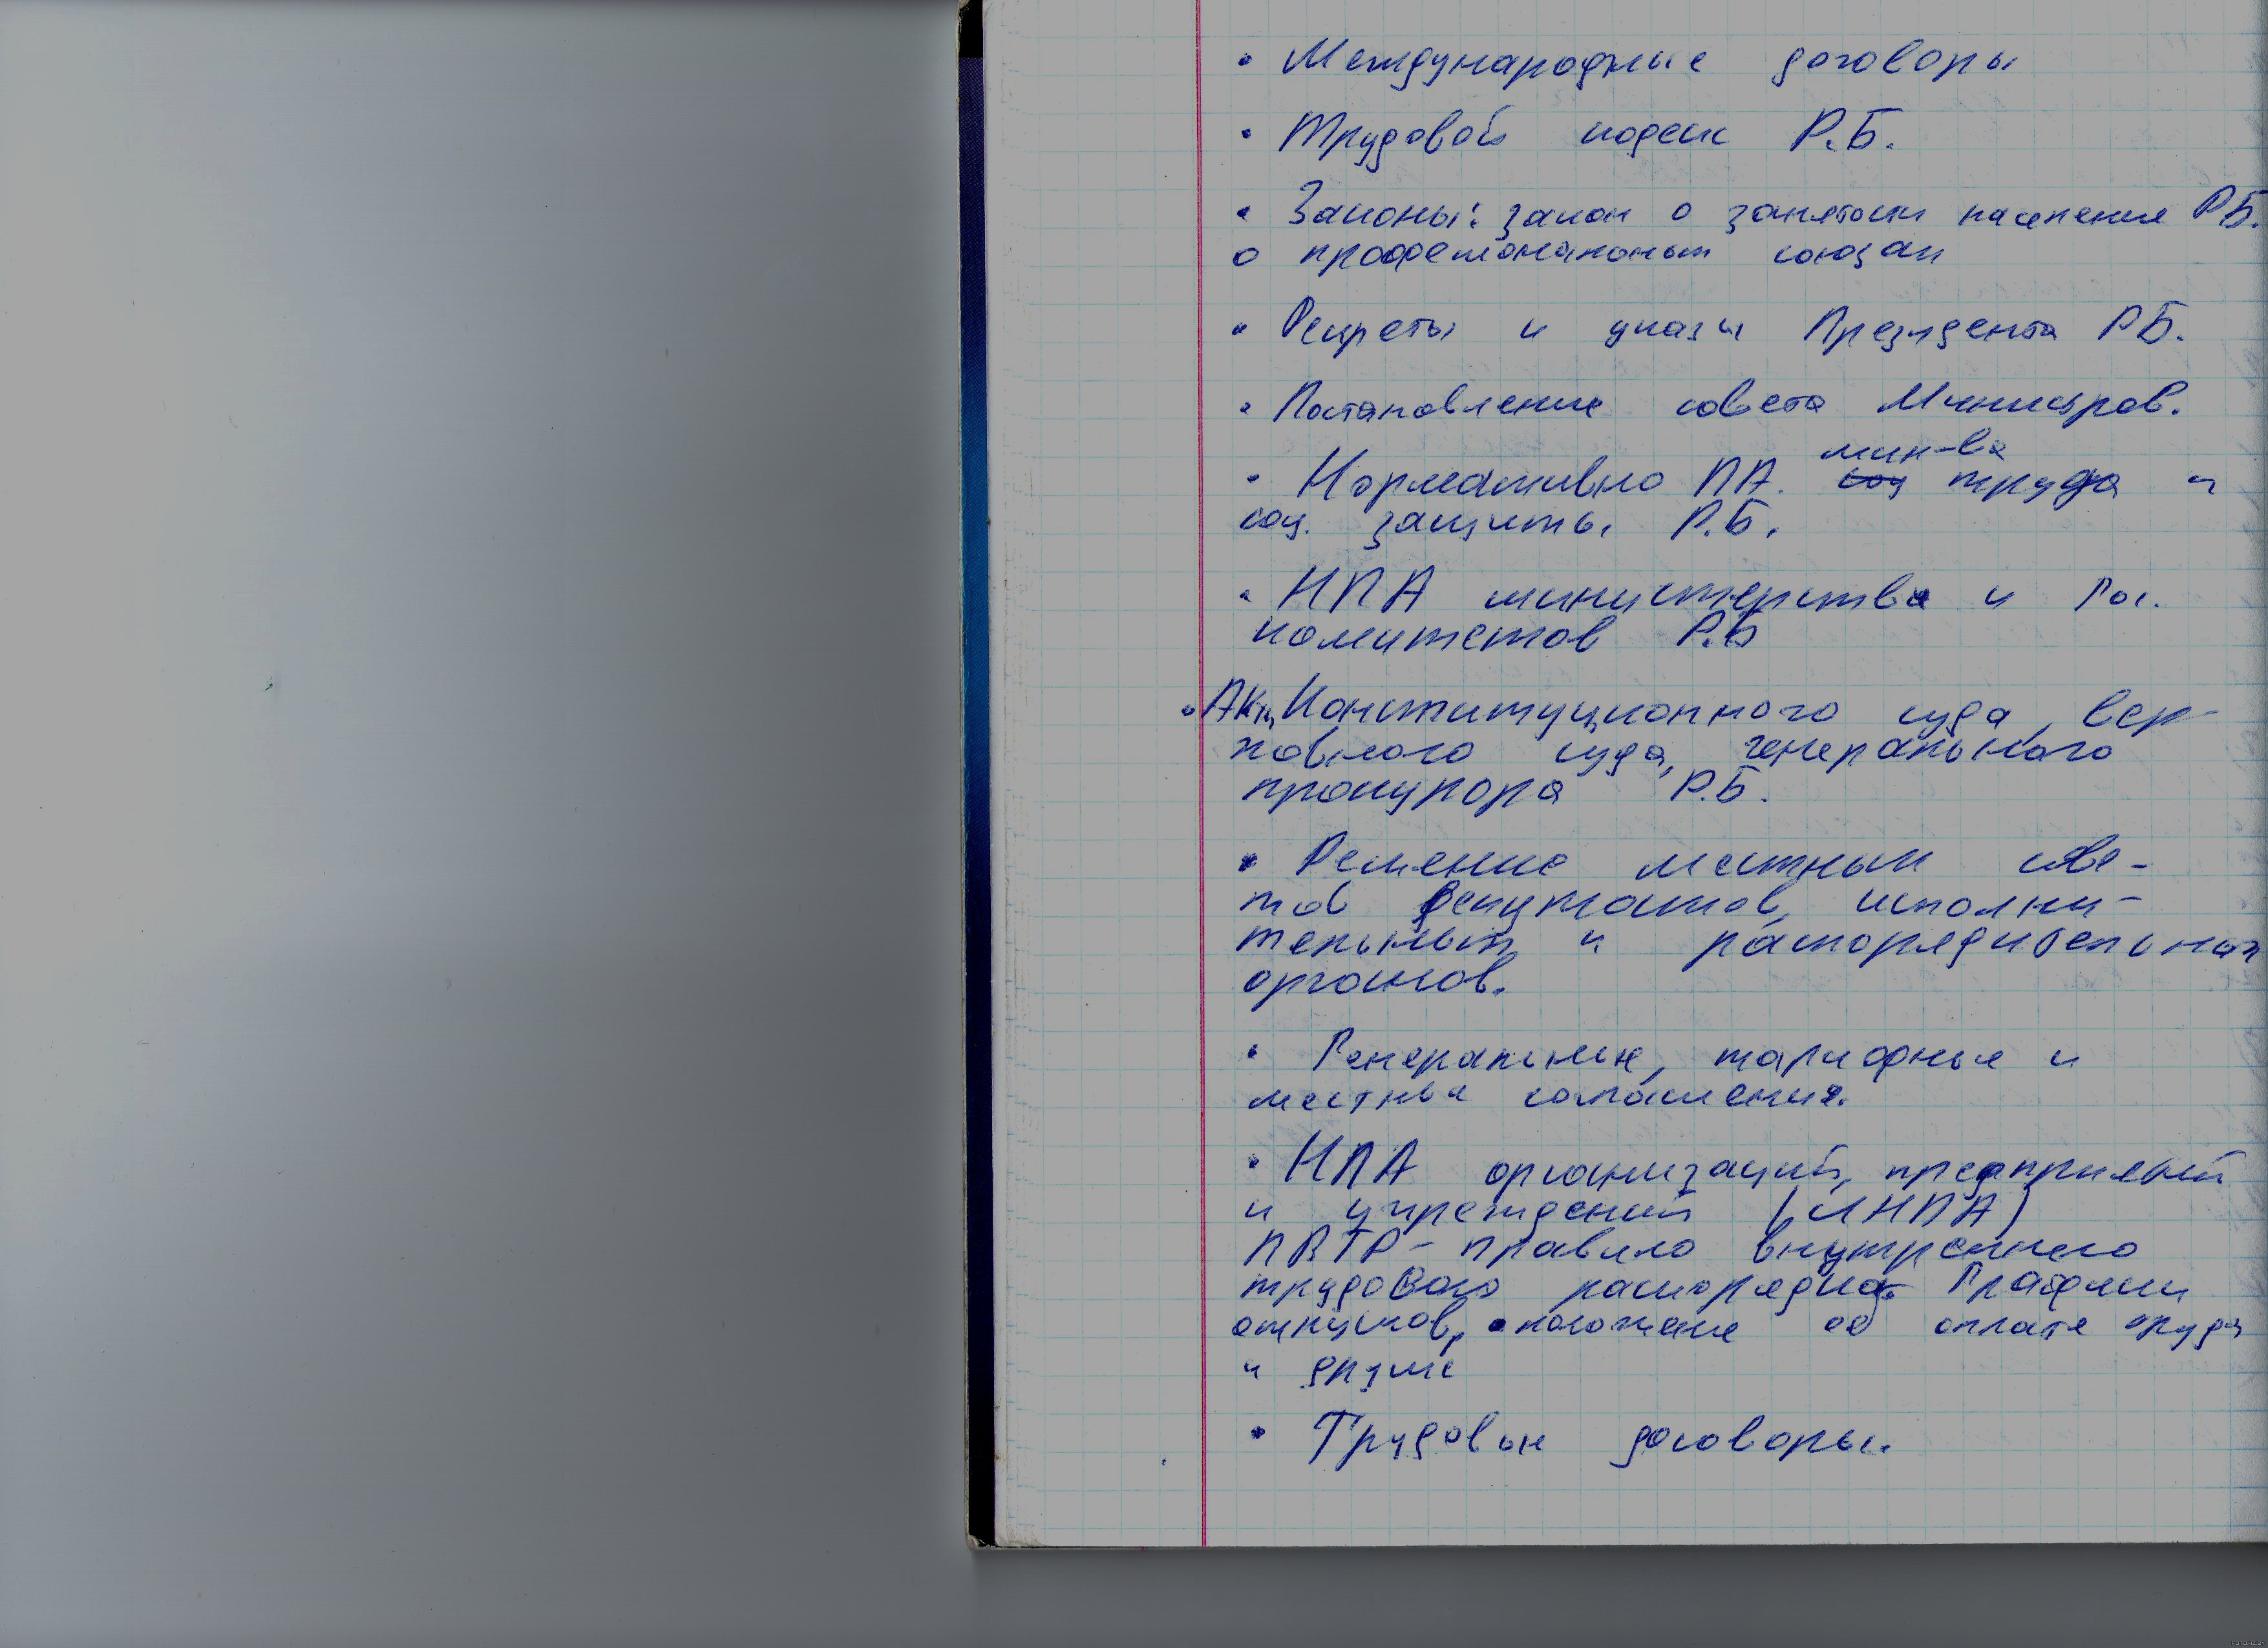 • Международные договоры
• Трудовой кодекс Р.Б.
• Законы: закон о занятости населения РБ.
о профессиональных союзах
• Декреты и указы Президента РБ.
• Постановление совета Министров.
мин-ва
• Нормативно ПА. соц труда и
соц. защиты Р.Б.
• НПА министерства и Гос.
комитетов Р.Б
• Акты Конституционного суда, Вер-
ховного суда, генерального
прокурора Р.Б.
• Решение местных сове-
тов депутатов, исполни-
тельных и распорядительных
органов.
• Генеральные, тарифные и
местные соглашения.
• НПА организаций, предприятий
и учреждений (ЛНПА)
ПВТР - правило внутреннего
трудового распорядка. Графики
отпусков, положение об оплате труда
и другие
• Трудовые договоры.